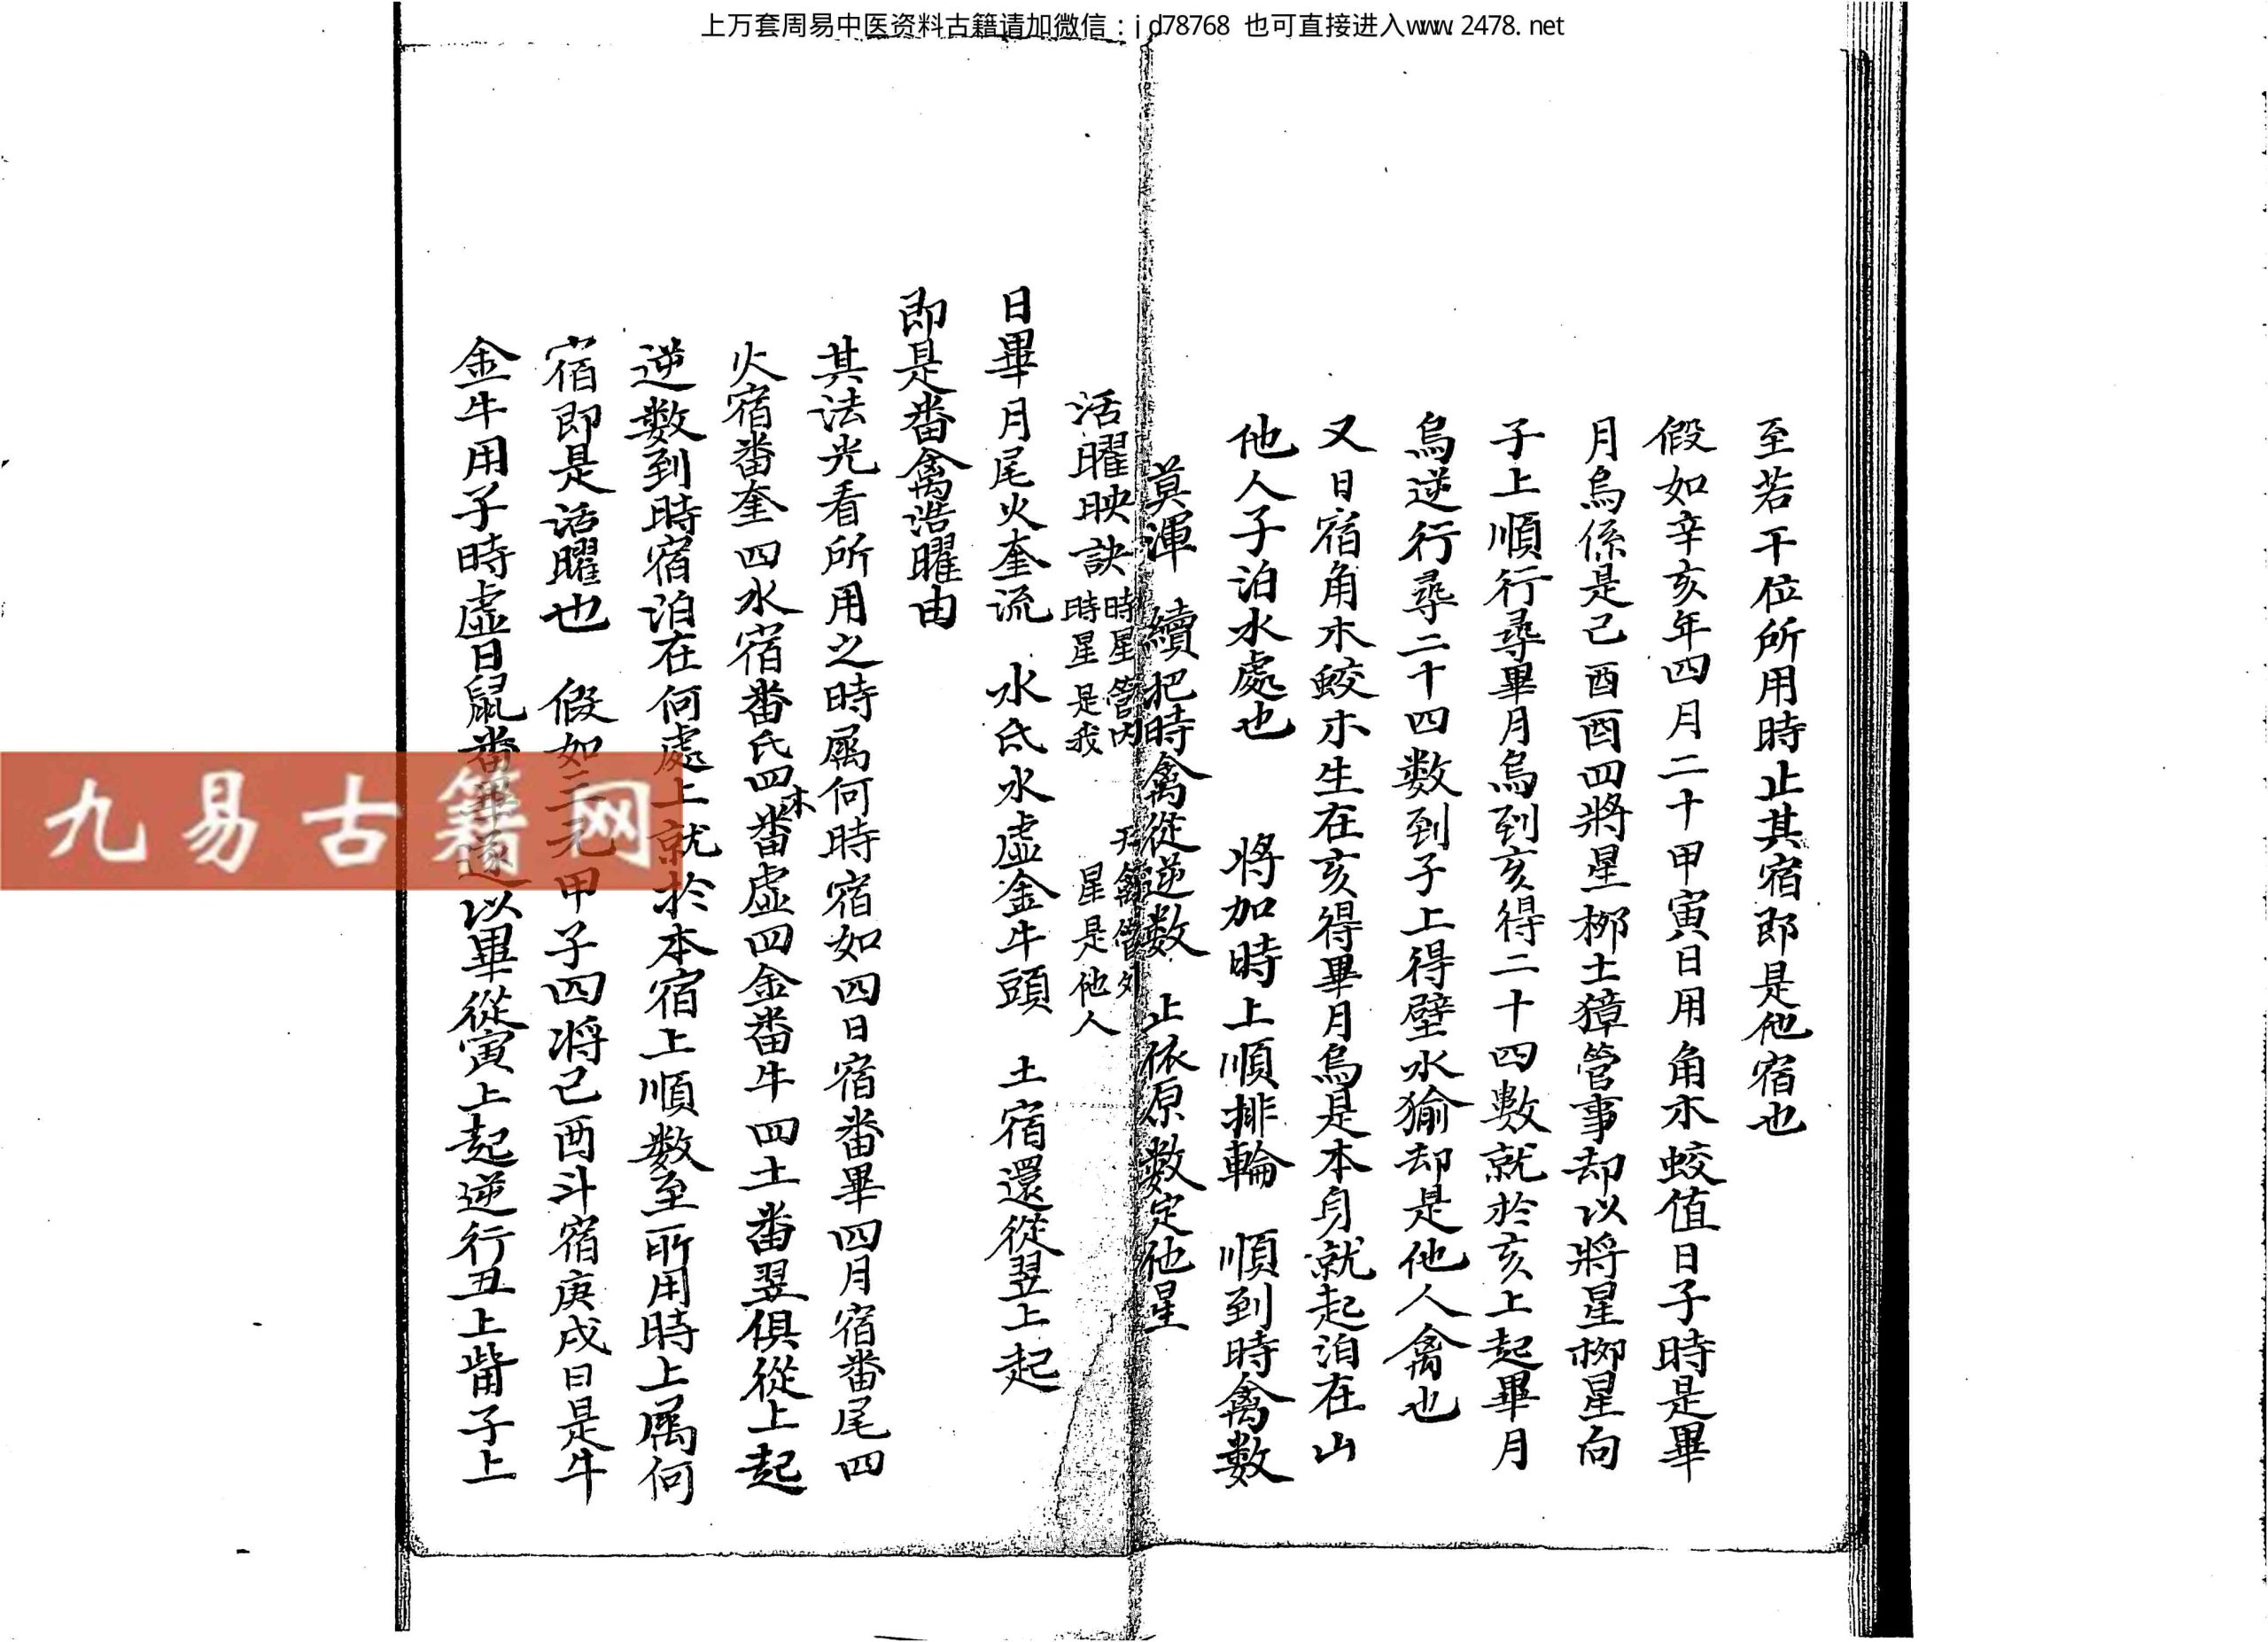 上万套周易中医资料古籍请加微信：jd78768 也可直接进入www.2478.net
至若干位所用時止其宿即是他宿也
假如辛亥年四月二十甲寅日用角木蛟值日子時是畢
月烏係是己酉酉四將星柳土獐管事却以將星柳星向
子上順行尋畢月烏到亥得二十四數就於亥上起畢月
烏逆行尋二十四数到子上得壁水㺄却是他人禽也
又日宿角木蛟木生在亥得畢月烏是本身就起泊在山
他人子泊水處也 將加時上順排輪 順到時禽數
莫渾 續把時禽從逆数 止依原数定他星
活曜映訣 時星管内 時星是我 禽管外 星是他人
日畢月尾火奎流 水氐水虚金牛頭 土宿還從翌上起
即是畨禽浩曜由
其法光看所用之時属何時宿如四日宿畨畢四月宿畨尾四
火宿畨奎四水宿畨氐四木畨虚四金畨牛四土畨翌俱從上起
逆数到時宿泊在何處上就於本宿上順数至所用時上属何
宿即是活曜也 假如二元甲子四将己酉斗宿庚戌日是牛
金牛用子時虚日鼠畨畢逐以畢從寅上起逆行丑上觜子上
九易古籍网